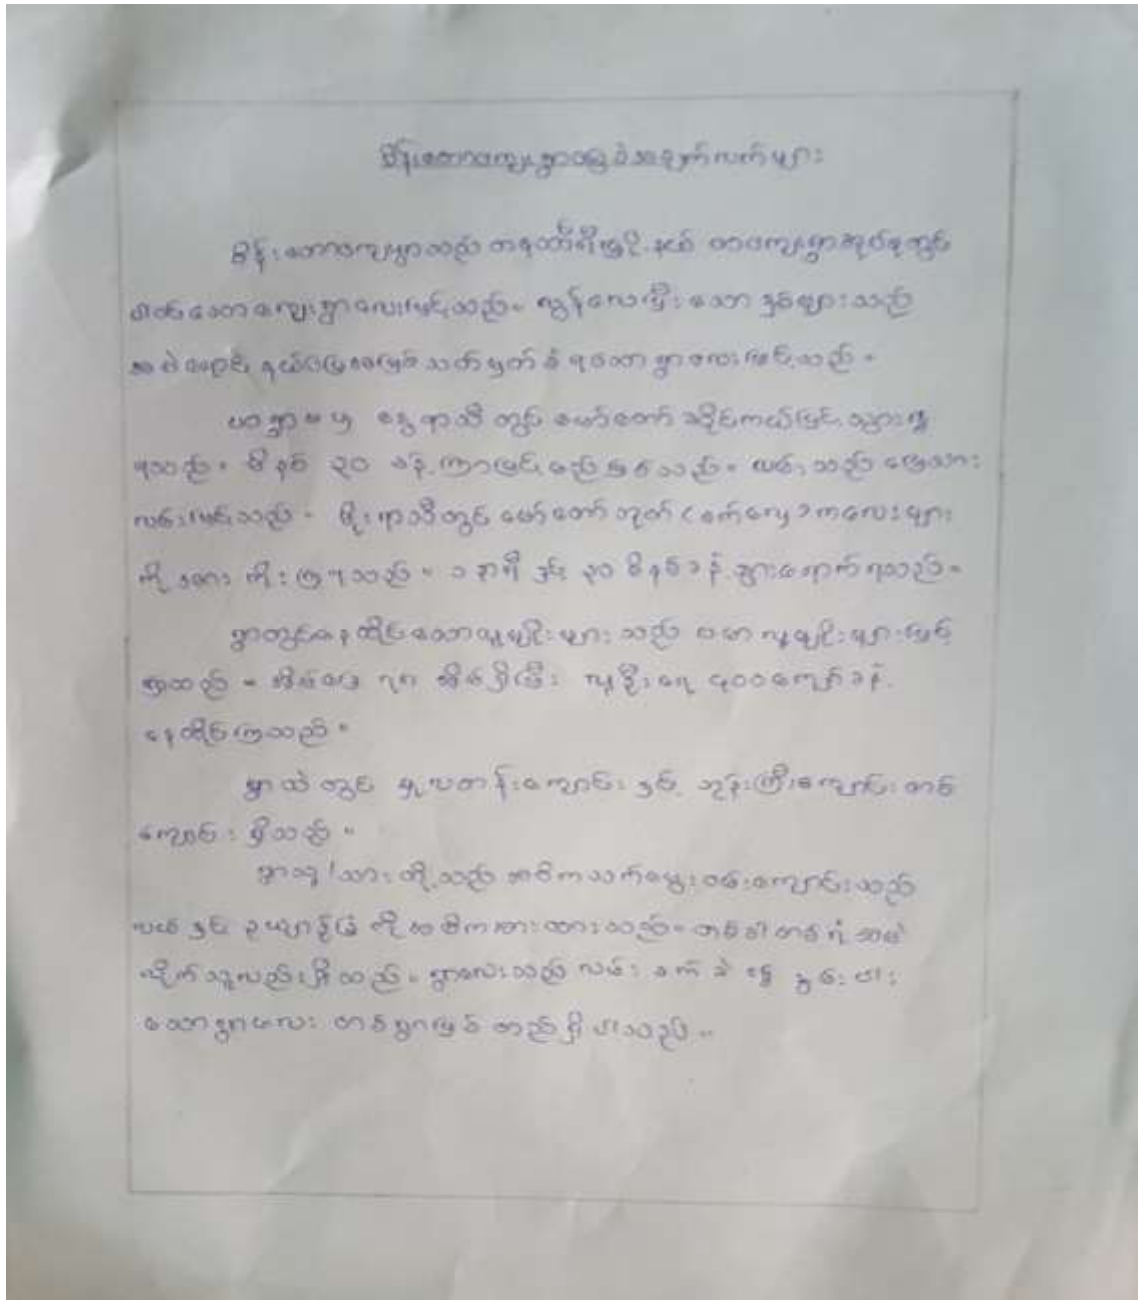 စိန်းတောကျေးရွာ၏ အချက်လက်များ
စိန်းတောကျေးရွာသည် တနင်္သာရီမြို့နယ် တကျေးရွာအုပ်စုတွင်
ပါဝင်သောကျေးရွာလေးဖြင့်သည်။ လွန်လေပြီးသော နှစ်များသည်
အမဲရောင် နယ်မြေအဖြစ် သတ်မှတ်ခံရသောရွာလေးဖြင့်သည်။
ယင်းရွာမှ နွေရာသီတွင် မော်တော်ဆိုင်ကယ်ဖြင့် သွားလာ
ရသည်။ မိနစ် ၃၀ ခန့် ကြာမြင့်မည်ဖြစ်သည်။ လမ်းသည် မြေသား
လမ်းဖြင့်သည်။ မိုးရာသီတွင် မော်တော်ဘုတ် စက်လှေ ကလေးများ
ကို အားကိုးကြရသည်။ ၁ နာရီ နှင့် ၃၀ မိနစ်ခန့် သွားရောက်ရသည်။
ရွာတွင်နေထိုင်သောလူမျိုးများသည် ဗမာလူမျိုးများဖြစ်
ကြသည်။ အိမ်ခြေ အိမ်ရှိပြီး လူဦးရေ ၄၀၀ကျော်ခန့်
နေထိုင်ကြသည်။
ရွာထဲတွင် မူလတန်းကျောင်း နှင့် ဘုန်းကြီးကျောင်း တစ်
ကျောင်း ရှိသည်။
ရွာသူ/သား တို့သည် အဓိကအသက်မွေးဝမ်းကျောင်းသည်
လယ် နှင့် ဥယျာဉ်ခြံ ကို အဓိကထားသည်။ တစ်ခါတစ်ရံ အမဲ
လိုက်သူလည်းရှိသည်။ ရွာလေးသည် လမ်းခက်ခဲ၍ နွမ်းပါး
သောရွာလေး တစ်ရွာဖြစ်တည်ရှိပါသည်။